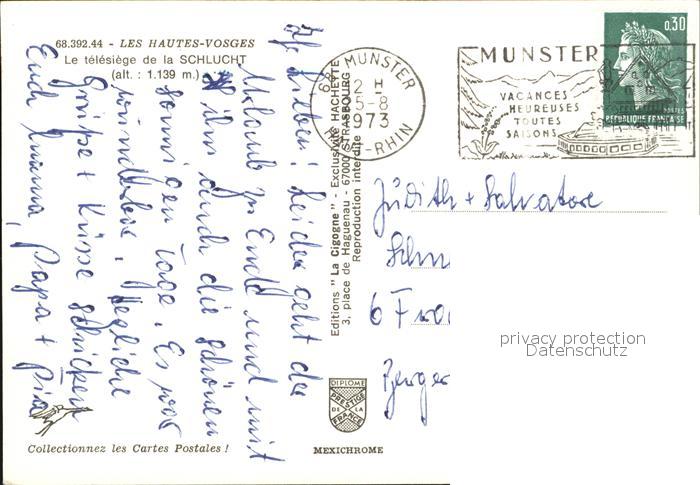 68.392.44 - LES HAUTES-VOSGES
Le télésiège de la SCHLUCHT
(alt. : 1.139 m.)
Ihr Lieben! Leider geht der
Urlaub zu Ende und mit
ihm auch die schönen
sonnigen Tage. Es war
wunderbar. Herzliche
Grüße + Küsse schicken
Euch Mama, Papa + Pia
Editions "La Cigogne" - Exclusivité HACHETTE
3, place de Haguenau - 67000 STRASBOURG
Reproduction interdite
68 MUNSTER
2 H
5-8
1973
-RHIN
MUNSTER
VACANCES
HEUREUSES
TOUTES
SAISONS
0,30
POSTES
REPUBLIQUE FRANÇAISE
Judith + Salvatore
Schm
6 Fra
Berger
privacy protection
Datenschutz
DIPLOME
PRESTIGE
DE LA
FRANCE
Collectionnez les Cartes Postales !
MEXICHROME